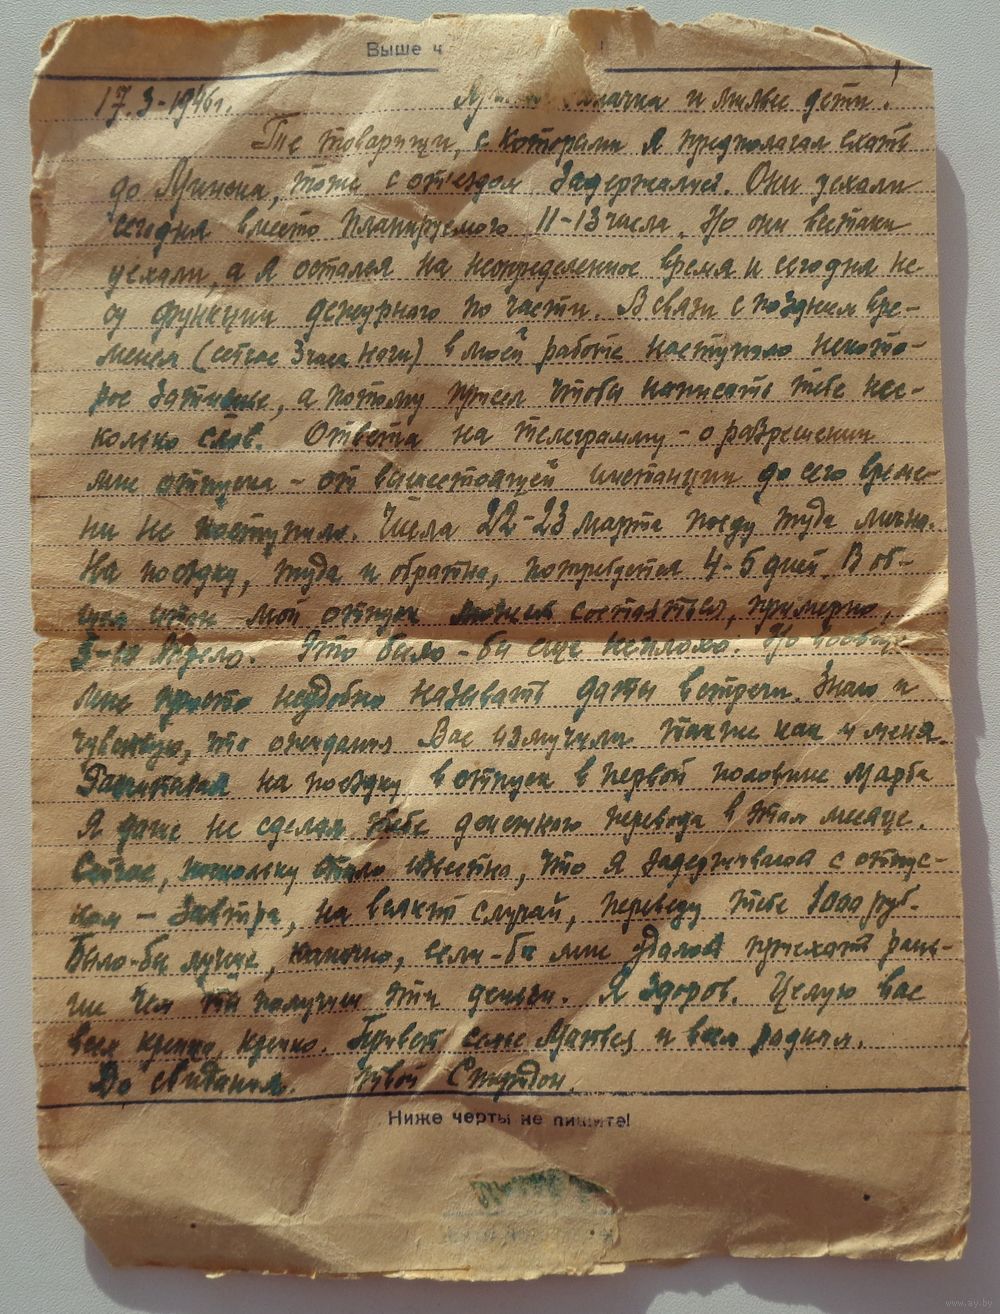 Выше ч
17.3-1946г. и милые дети.
Те товарищи, с которыми я предполагал ехать
до Минска, тоже с от'ездом задержались. Они уехали
сегодня вместо планируемого 11-13 числа. Но они всетаки
уехали, а я остался на неопределенное время и сегодня не-
су функции дежурного по части. В связи с поздним вре-
менем (сейчас 3 часа ночи) в моей работе наступило некото-
рое затишье, а потому чтобы написать тебе нес-
колько слов. Ответа на телеграмму - о разрешении
мне отпуска - от вышестоящей инстанции до сего време-
ни не поступило. Числа 22-23 марта поеду туда лично.
На поездку, туда и обратно, потребуется 4-5 дней. В об-
щем мой отпуск может состояться, примерно,
Апреля. Это было-бы еще неплохо. Но вообще
мне просто неудобно называть даты встречи. Знаю и
чувствую, что ожидания Вас измучили также как и меня.
Расчитывая на поездку в отпуск в первой половине марта
я даже не сделал тебе денежного перевода в этом месяце.
Сейчас, поскольку стало известно, что я задерживаюсь с отпус-
ком - завтра, на всякий случай, переведу тебе 1000 руб.
Было-бы лучше, конечно, если-бы мне удалось приехать рань-
ше чем ты получишь эти деньги. Я здоров. Целую вас
всех крепко, крепко. Привет семье и всем родным.
До свидания. твой
Ниже черты не пишите!
www.ay.by